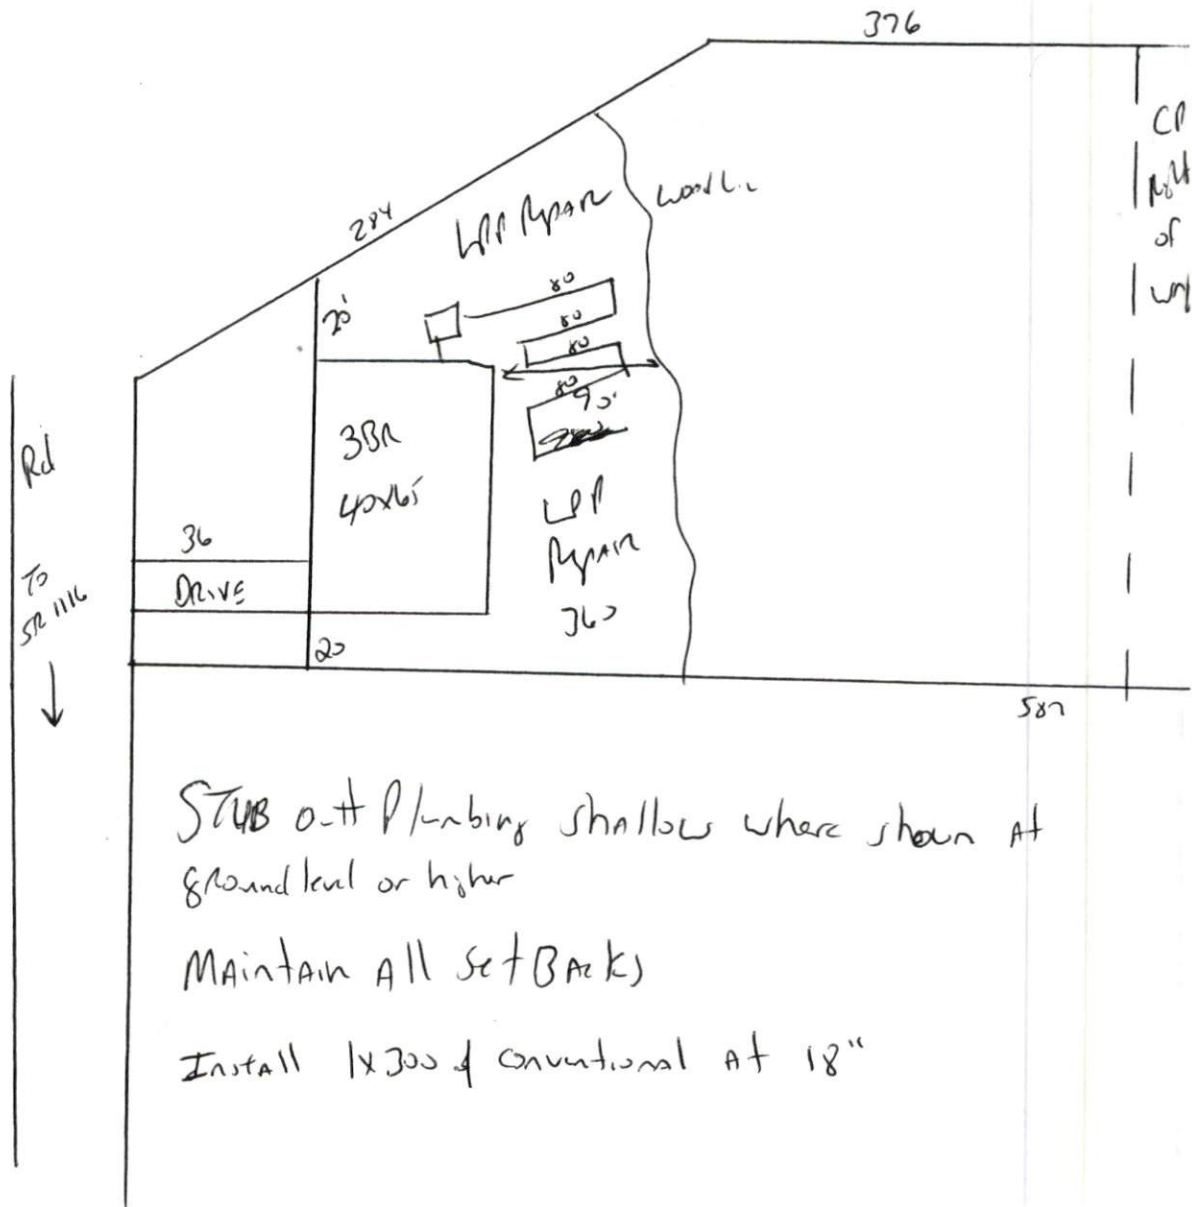 376
CP
of
284
LPP Repair
woodli
80
20'
80
80
80
90'
Rd
3BR
40x65
LPP
Repair
360
36
DRIVE
To
SR 1116
20
587
STUB out Plumbing shallow where shown At
ground level or higher
MAintAin All SetBAcks
InstAll 1x300 of conventional At 18"